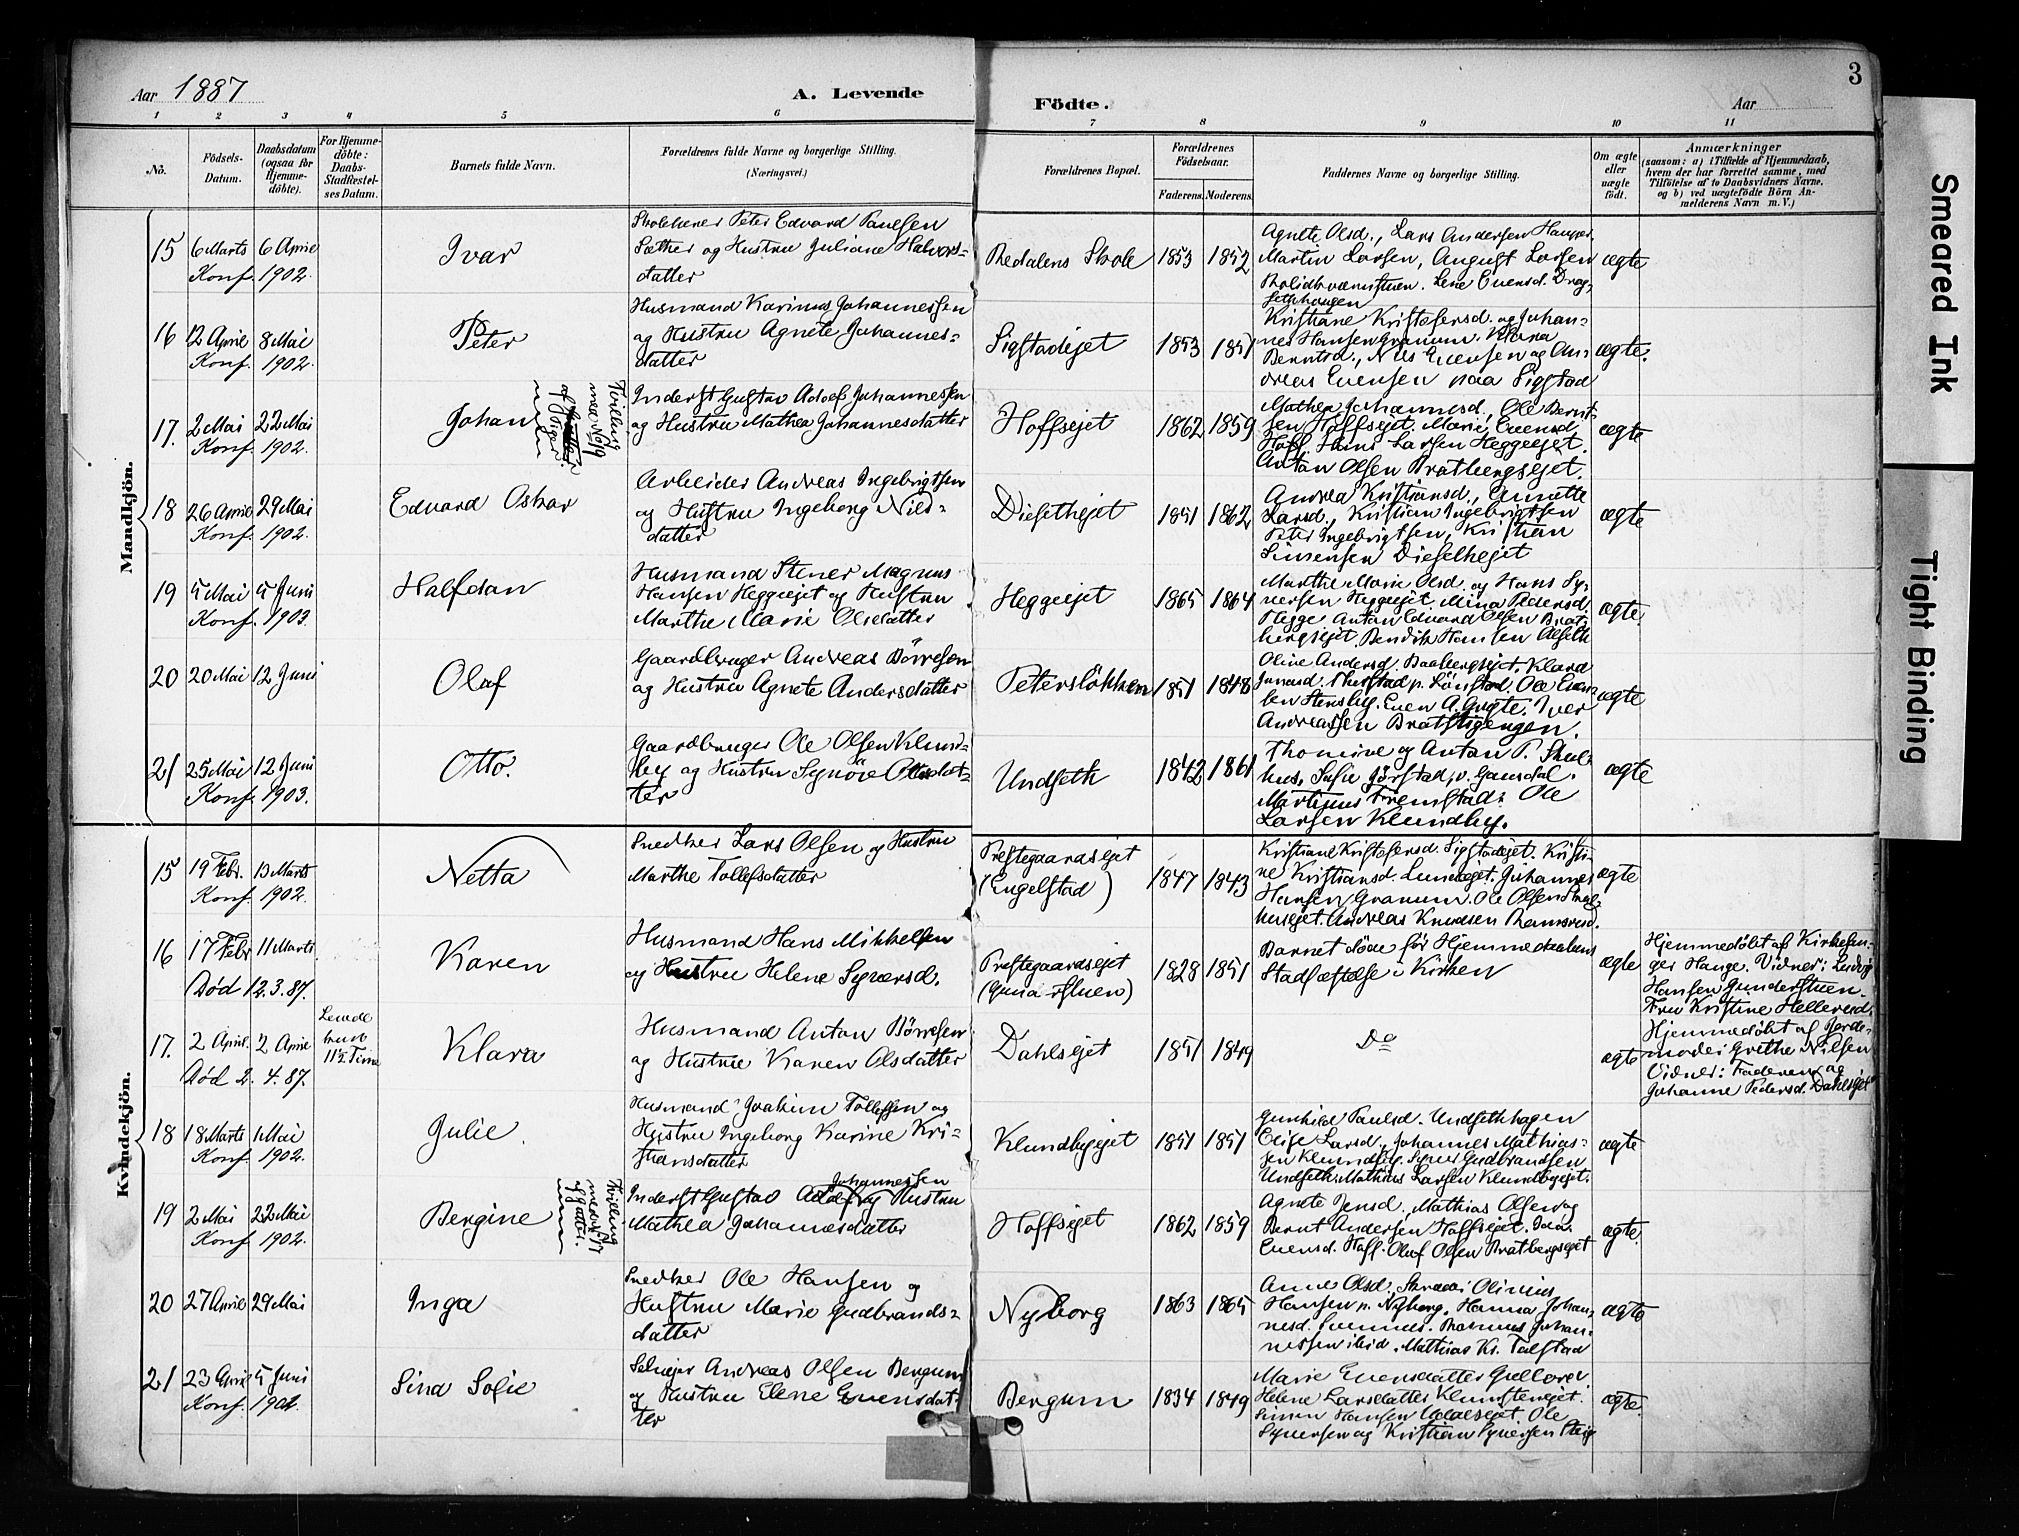 Aar 1887
A. Levende
Födte.
Aar
3
1 2 3 4 5 6 7 8 9 10 11
No.
Födsels-
Datum.
Daabsdatum
(ogsaa for
Hjemme-
döbte).
For Hjemme-
döbte:
Daabs-
Stadfæstel-
ses Datum.
Barnets fulde Navn.
Forældrenes fulde Navne og borgerlige Stilling.
(Næringsvei.)
Forældrenes Bopæl.
Forældrenes
Födselsaar.
Faderens. Moderens.
Faddernes Navne og borgerlige Stilling.
Om ægte
eller
uægte
født.
Anmærkninger
(saasom: a) i Tilfælde af Hjemmedaab,
hvem der har forrettet samme, med
Tilföielse af to Daabsvidners Navne,
og b) ved uægtefödte Börn An-
melderens Navn m. V.)
Mandkjön.
15 6 Marts 6 April
Konf. 1902.
Ivar
Skolelærer Peter Edvard Paulsen
Sæther og Hustru Juliane Halvors-
datter
Redalens Skole 1853 1852
Agnete Olsd., Lars Andersen
Martin Larsen, August Larsen
Lene Evensd.
ægte
16 12 April 8 Mai
Konf. 1902.
Peter
Husmand Karinus Johannessen
og Hustru Agnete Johannes-
datter
Sigstadejet 1853 1851
Kristiane Kristofersd. og Johan-
nes Hansen Granum. Klara
Berntsd., Nils Evensen og An-
dreas Evensen paa Sigstad
ægte.
17. 2 Mai 22 Mai
Konf. 1902.
Johan
Tvilling
med No 19
af Piger
Inderst Gustav Adolf Johannessen
og Hustru Mathea Johannesdatter
Hoffsejet 1862 1859
Mathea Johannesd., Ole Bernt-
sen Hoffsejet. Marie Evensd.
Hoff. Hans Larsen Heggeejet.
Anton Olsen Bratbergsejet.
ægte
18 26 April 29 Mai
Konf. 1902.
Edvard Oskar
Arbeider Andreas Ingebrigtsen
og Hustru Ingeborg Nils-
datter
Diesethejet 1851 1862
Andrea Kristiansd., Annette
Larsd., Kristian Ingebrigtsen
Peter Ingebrigtsen, Kristian
Simensen Diesethejet
ægte
19 5 Mai 5 Juni
Konf. 1903.
Halfdan
Husmand Stener Magnus
Hansen Heggeejet og Hustru
Marthe Marie Olsdatter
Heggeejet 1865 1864
Marthe Marie Olsd. og Hans Sy-
versen Heggeejet. Mina Pedersd.
Hegge Anton Edvard Olsen Brat-
bergsejet. Bendik Hansen Alseth
ægte.
20 20 Mai 12 Juni
Olaf
Gaardbruger Andreas Börresen
og Hustru Agnete Andersdatter
Petersløkken 1851 1848
Oline Andersd. Klara
Ole Even-
sen Even A. Iver
Andreassen
ægte
21 25 Mai 12 Juni
Konf. 1903.
Otto.
Gaardbruger Ole Olsen Klund-
by og Hustru Synöve Olsdat-
ter
Undseth 1842 1861
Thomine og Anton P. Skul-
hus,
Martinus Fremstad. Ole
Larsen Klundby.
ægte
Kvindekjön.
15 19 Febr. 13 Marts
Konf. 1902.
Netta
Snedker Lars Olsen og Hustru
Marthe Tollefsdatter
Prestegaardsejet
(Engelstad)
1847 1843
Kristiane Kristofersd. Sigstadejet. Kristi-
ne Kristiansd. Johannes
Hansen Granum. Ole Olsen Skul-
husejet. Andreas Knudsen
ægte
16 17 Febr 11 Marts
Død 12.3.87.
Karen
Husmand Hans Mikkelsen
og Hustru Helene Syversd.
Prestegaardsejet
1828 1851
Barnet døde før Hjemmedaabens
Stadfæstelse i Kirken
ægte
Hjemmedøbt af Kirkesan-
ger Hauge. Vidner: Ludvig
Hansen Gunderstuen.
Fru Kristine Hellerud.
17. 2 April 2 April
Død 2.4.87.
Levede
kun
11½ Time
Klara
Husmand Anton Börresen
og Hustru Karen Olsdatter
Dahlsejet 1851 1849
Do
ægte
Hjemmedøbt af Jorde-
moder Grethe Nilsen
Vidner: Faderen og
Johanne Pedersd. Dahlsejet
18 18 Marts 1 Mai
Konf. 1902.
Julie.
Husmand Joakim Tollefsen og
Hustru Ingeborg Karine Kri-
stiansdatter
Klundbyejet 1851 1851
Gunhild Paulsd. Undsethhagen
Elise Larsd., Johannes Mathias-
sen Klundby. Syver Gudbrandsen
Undseth. Mathias Larsen Klundbyejet.
ægte
19 2 Mai 22 Mai
Konf. 1902.
Bergine
Tvilling
med No 17
af Gutter.
Inderst Gustav Adolf Johannessen og Hustru
Mathea Johannesdatter
Hoffsejet 1862 1859
Agnete Jensd., Mathias Olsen og
Bernt Andersen Hoffsejet.
Evensd. Hoff. Olaf Olsen Bratbergsejet
ægte.
20 27 April 29 Mai
Inga
Snedker Ole Hansen og
Hustru Marie Gudbrands-
datter
Nyborg 1863 1865
Anne Olsd., Olinus
Hansen p. Nyborg. Hanna Johan-
nesd. Johan-
nessen ibid. Mathias Kr. Talstad
ægte
21 23 April 5 Juni
Konf. 1902.
Sina Sofie
Selveier Andreas Olsen Bergum
og Hustru Elene Evensdat-
ter
Bergum 1834 1849
Marie Evensdatter
Helene Larsdatter
Simen Hansen Ole
Syversen og Kristian Syversen
ægte.
Smeared Ink
Tight Binding